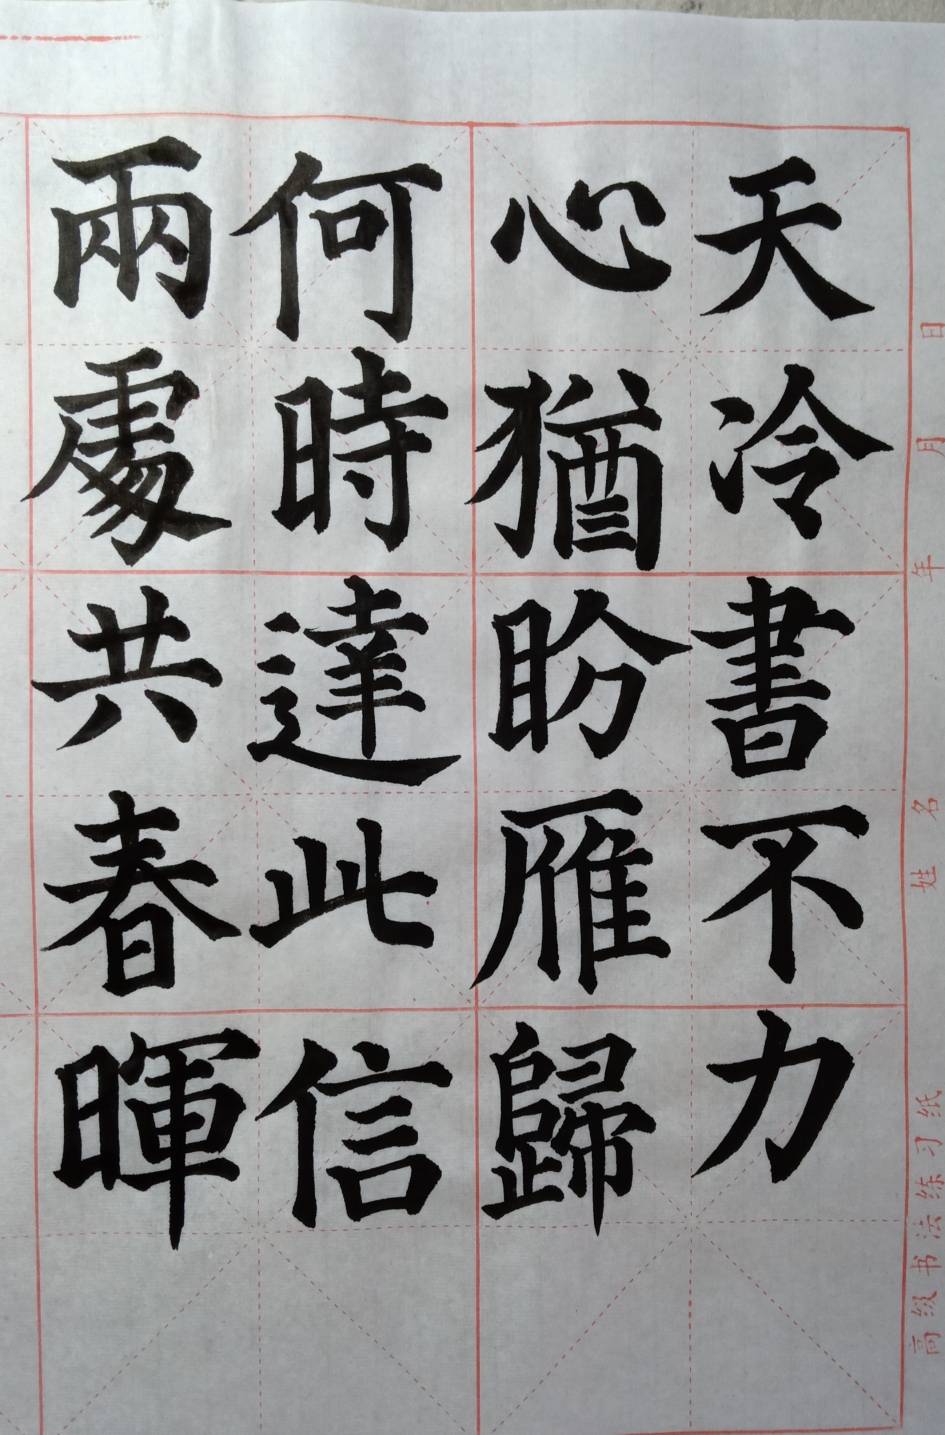 天冷書不力
心猶盼雁歸
何時達此信
兩處共春暉
日
月
年
姓名
高级书法练习纸